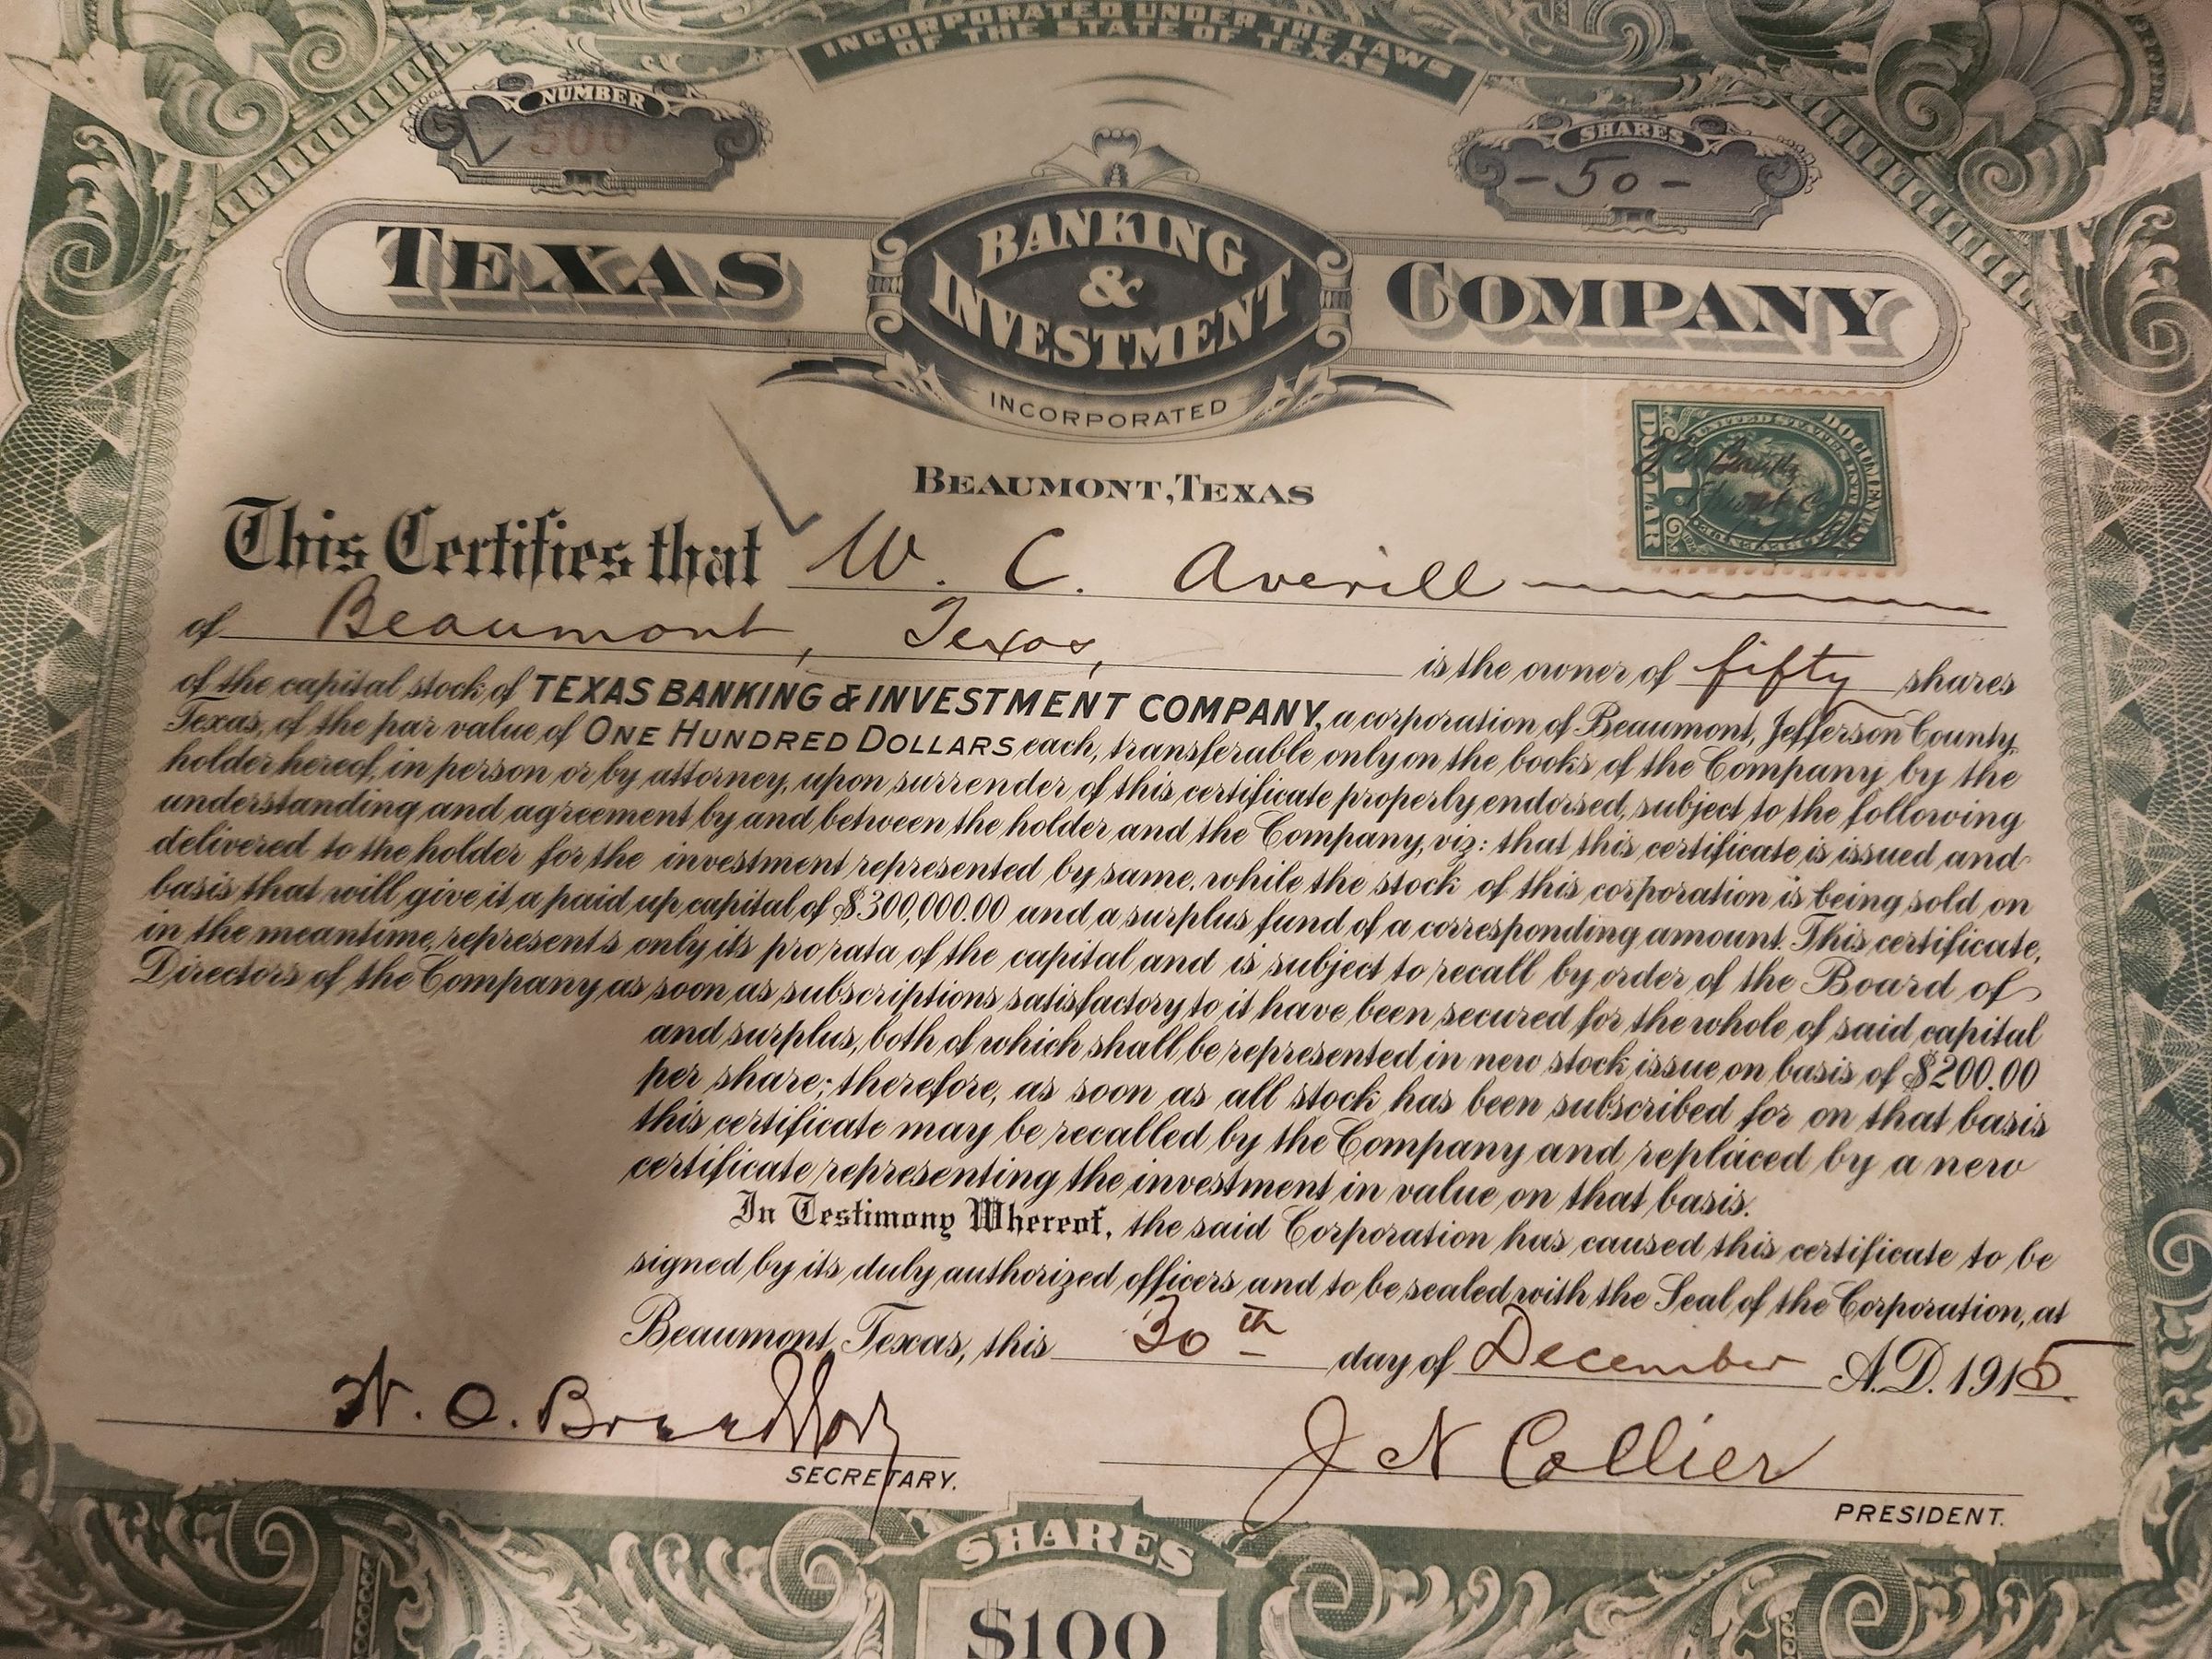 INCORPORATED UNDER THE LAWS
OF THE STATE OF TEXAS
NUMBER
500
SHARES
-50-
TEXAS BANKING & INVESTMENT COMPANY
INCORPORATED
BEAUMONT, TEXAS
UNITED STATES
DOCUMENTARY
1
DOLLAR
This Certifies that W. C. Averill
of Beaumont, Texas, is the owner of fifty shares
of the capital stock of TEXAS BANKING & INVESTMENT COMPANY, a corporation of Beaumont, Jefferson County
Texas, of the par value of ONE HUNDRED DOLLARS each, transferable only on the books of the Company by the
holder hereof, in person or by attorney, upon surrender of this certificate properly endorsed, subject to the following
understanding and agreement by and between the holder and the Company, viz: that this certificate is issued and
delivered to the holder for the investment represented by same, while the stock of this corporation is being sold on
basis that will give it a paid up capital of $300,000.00 and a surplus fund of a corresponding amount. This certificate,
in the meantime, represents only its pro rata of the capital and is subject to recall by order of the Board of
Directors of the Company as soon as subscriptions satisfactory to it have been secured for the whole of said capital
and surplus, both of which shall be represented in new stock issue on basis of $200.00
per share; therefore, as soon as all stock has been subscribed for on that basis
this certificate may be recalled by the Company and replaced by a new
certificate representing the investment in value on that basis.
In Testimony Whereof, the said Corporation has caused this certificate to be
signed by its duly authorized officers and to be sealed with the Seal of the Corporation, at
Beaumont, Texas, this 30th day of December A.D. 1915
SECRETARY.
J N Collier
PRESIDENT.
SHARES
$100